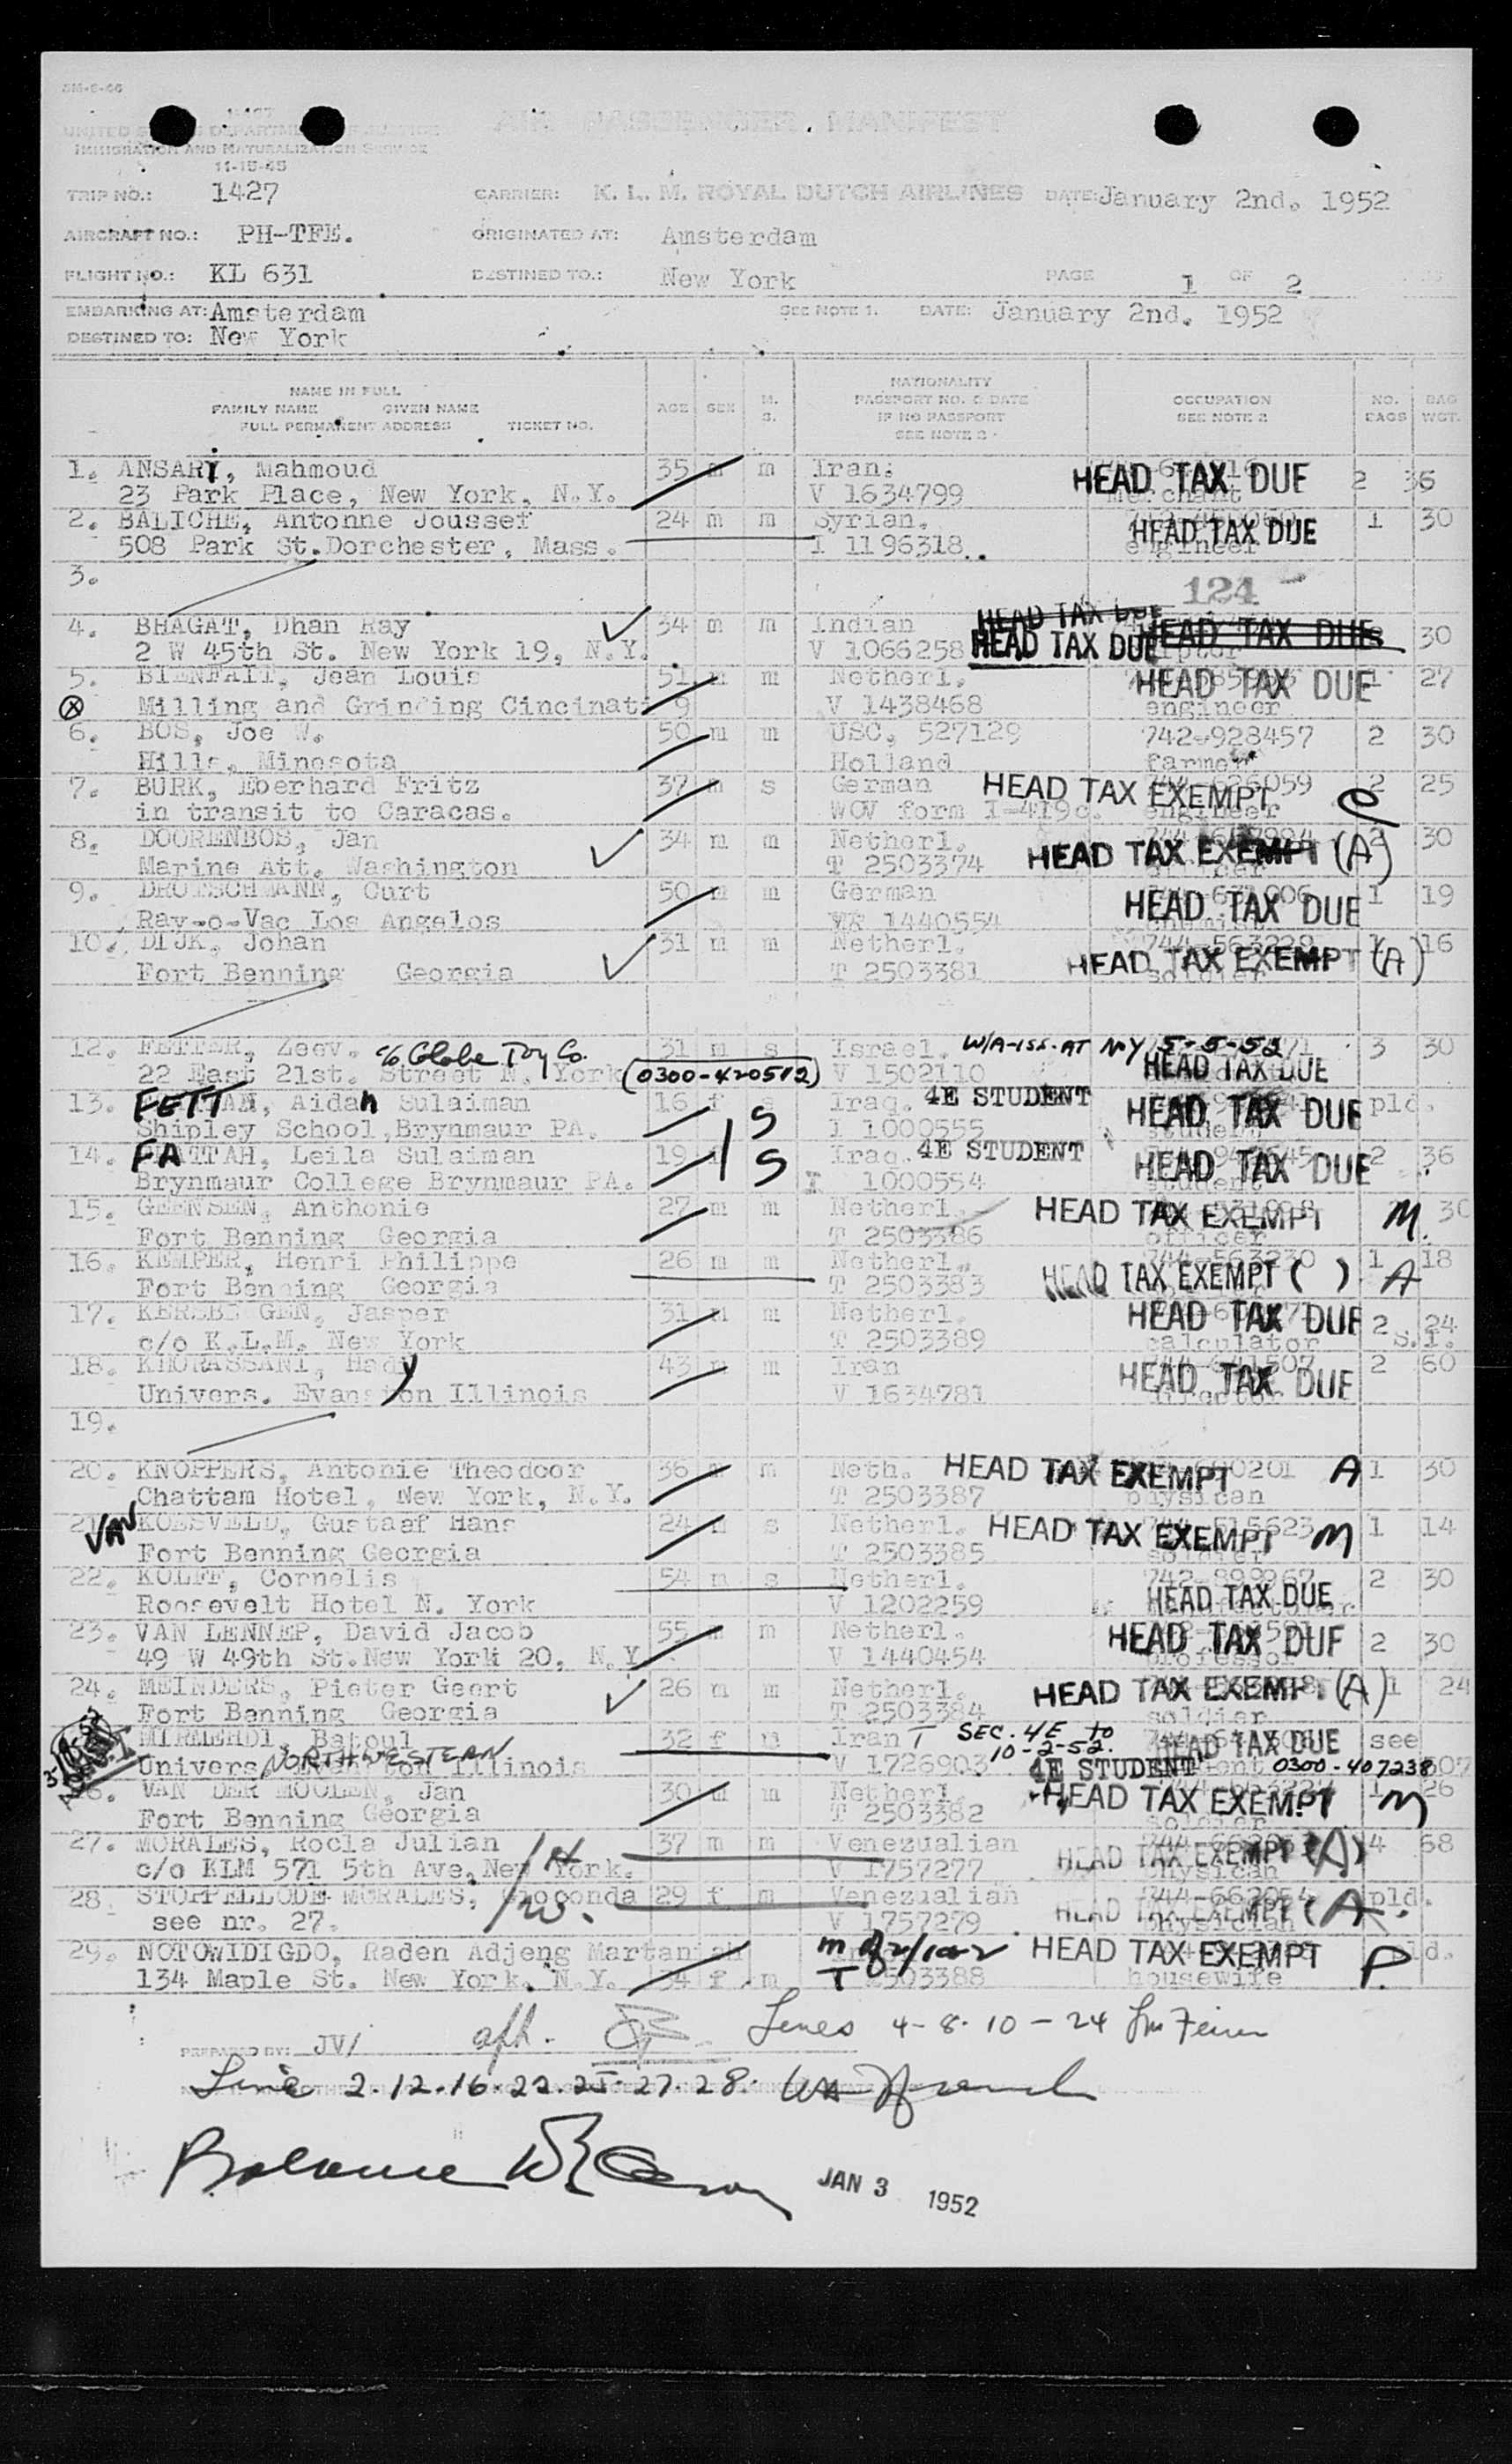 SM-6-46
UNITED STATES DEPARTMENT OF JUSTICE
IMMIGRATION AND NATURALIZATION SERVICE
11-15-45
AIR PASSENGER MANIFEST
TRIP NO.: 1427 CARRIER: K. L. M. ROYAL DUTCH AIRLINES DATE: January 2nd. 1952
AIRCRAFT NO.: PH-TFE. ORIGINATED AT: Amsterdam
FLIGHT NO.: KL 631 DESTINED TO.: New York PAGE 1 OF 2
EMBARKING AT: Amsterdam SEE NOTE 1. DATE: January 2nd. 1952
DESTINED TO: New York
NAME IN FULL
FAMILY NAME GIVEN NAME
FULL PERMANENT ADDRESS TICKET NO.
AGE SEX M. S.
NATIONALITY
PASSPORT NO. & DATE
IF NO PASSPORT
SEE NOTE 2
OCCUPATION
SEE NOTE 2
NO. BAGS BAG WGT.
1. ANSARI, Mahmoud 35 m m Iran. HEAD TAX DUE 2 36
23 Park Place, New York, N.Y. V 1634799 merchant
2. BALICHE, Antonne Joussef 24 m m Syrian. HEAD TAX DUE 1 30
508 Park St. Dorchester, Mass. I 1196318. engineer
3. 124
4. BHAGAT, Dhan Ray 34 m m Indian HEAD TAX DUE HEAD TAX DUE 30
2 W 45th St. New York 19, N.Y. V 1066258 HEAD TAX DUE
5. BIENFAIT, Jean Louis 51 m m Netherl. HEAD TAX DUE 1 27
Milling and Grinding Cincinati 9 V 1438468 engineer
6. BOS, Joe W. 50 m m USC. 527129 742-928457 2 30
Hills, Minesota Holland farmer
7. BURK, Eberhard Fritz 37 m s German HEAD TAX EXEMPT 744-626059 2 25
in transit to Caracas. WOV form I-419c. engineer
8. DOORENBOS, Jan 34 m m Netherl. HEAD TAX EXEMPT (A) 2 30
Marine Att. Washington T 2503374 officer
9. DROTSCHMANN, Curt 50 m m German HEAD TAX DUE 1 19
Ray-o-Vac Los Angelos 1440554 chemist
10. DIJK, Johan 31 m m Netherl. 744-563229 HEAD TAX EXEMPT (A) 1 16
Fort Benning Georgia T 2503381 soldier
12. FETTER, Zeev. c/o Globe Toy Co. 31 m s Israel. W/A-iss. AT N-Y 5-5-52 3 30
22 East 21st. Street N. York (0300-420512) V 1502110 HEAD TAX DUE
13. FETTAH, Aidah Sulaiman 16 f s Iraq. 4E STUDENT HEAD TAX DUE pld.
Shipley School, Brynmaur PA. S I 1000555 student
14. FATTAH, Leila Sulaiman 19 Iraq. 4E STUDENT HEAD TAX DUE 2 36
Brynmaur College Brynmaur PA. S I 1000554 student
15. GEENSEN, Anthonie 27 m m Netherl. HEAD TAX EXEMPT M. 30
Fort Benning Georgia T 2503386 officer
16. KEMPER, Henri Philippe 26 m m Netherl. 744-563230 1 18
Fort Benning Georgia T 2503383 HEAD TAX EXEMPT ( ) A
17. KEREBE GEN, Jasper 31 m Netherl. HEAD TAX DUE 2 24
c/o K.L.M. New York T 2503389 calculator S.I.
18. KHORASSANI, Hady 43 m m Iran HEAD TAX DUE 2 60
Univers. Evanston Illinois V 1634781 director
19.
20. KNOPPERS, Antonie Theodoor 36 m m Neth. HEAD TAX EXEMPT A 1 30
Chattam Hotel, New York, N.Y. T 2503387 physican
21. VAN KOESVELD, Gustaef Hans 24 m s Netherl. HEAD TAX EXEMPT M 1 14
Fort Benning Georgia T 2503385 soldier
22. KOLFF, Cornelis 54 m s Netherl. HEAD TAX DUE 2 30
Roosevelt Hotel N. York V 1202259
23. VAN LENNEP, David Jacob 55 m m Netherl. HEAD TAX DUE 2 30
49 W 49th St. New York 20, N.Y. V 1440454 professor
24. MEINDERS, Pieter Geert 26 m m Netherl. HEAD TAX EXEMPT (A) 1 24
Fort Benning Georgia T 2503384 soldier
MIRMEHDI, Batoul 32 f m Iran T SEC. 4E to 10-2-52. HEAD TAX DUE see
Univers. NORTHWESTERN Illinois V 1726903 4E STUDENT 0300-407238
26. VAN DER MOOLEN, Jan 30 m m Netherl. HEAD TAX EXEMPT M 1 26
Fort Benning Georgia T 2503382 soldier
27. MORALES, Rocla Julian 37 m m Venezualian HEAD TAX EXEMPT (A) 4 68
c/o KLM 571 5th Ave. New York. /H V 1757277 physican
28. STOPPELLODE MORALES, Gioconda 29 f m Venezualian 744-662054 pld.
see nr. 27. /W. V 1757279 HEAD TAX EXEMPT (A. physician
29. NOTOWIDIGDO, Raden Adjeng Martaniah HEAD TAX EXEMPT P. pld.
134 Maple St. New York. N.Y. 34 f m T 2503388 housewife
PREPARED BY: JV/ Lines 4-8-10-24
Line 2.12.16.22.25.27.28.
Balance
JAN 3 1952